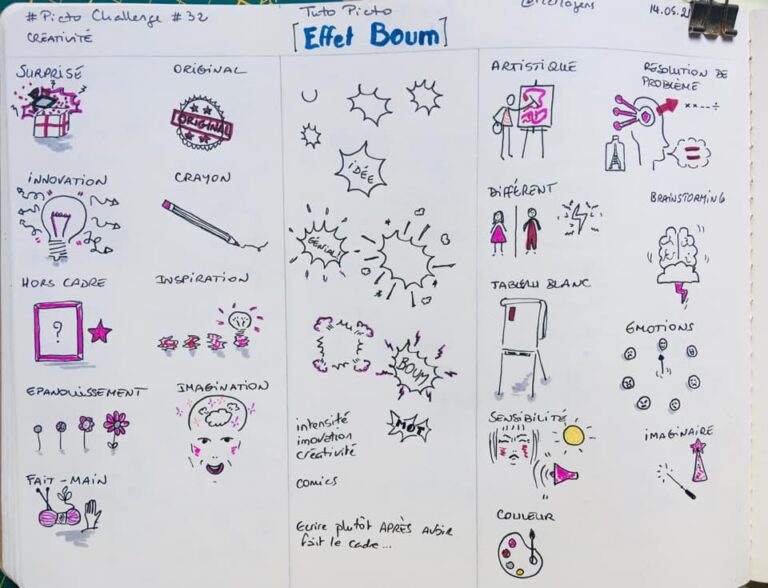 # Picto Challenge # 32
CRÉATIVITÉ
Tuto Picto
[Effet Boum]
14.05.21
SURPRISE
ORIGINAL
ORIGINAL
INNOVATION
CRAYON
HORS CADRE
?
INSPIRATION
EPANOUISSEMENT
IMAGINATION
FAIT-MAIN
IDÉE
GÉNIAL
BOUM
MOT
intensité
imovation
créativité
comics
Ecrire plutôt APRÈS AVOIR
fait le cadre...
ARTISTIQUE
RÉSOLUTION DE
PROBLÈME
××--÷
=
DIFFÉRENT
BRAINSTORMING
TABLEAU BLANC
ÉMOTIONS
SENSIBILITÉ
IMAGINAIRE
COULEUR